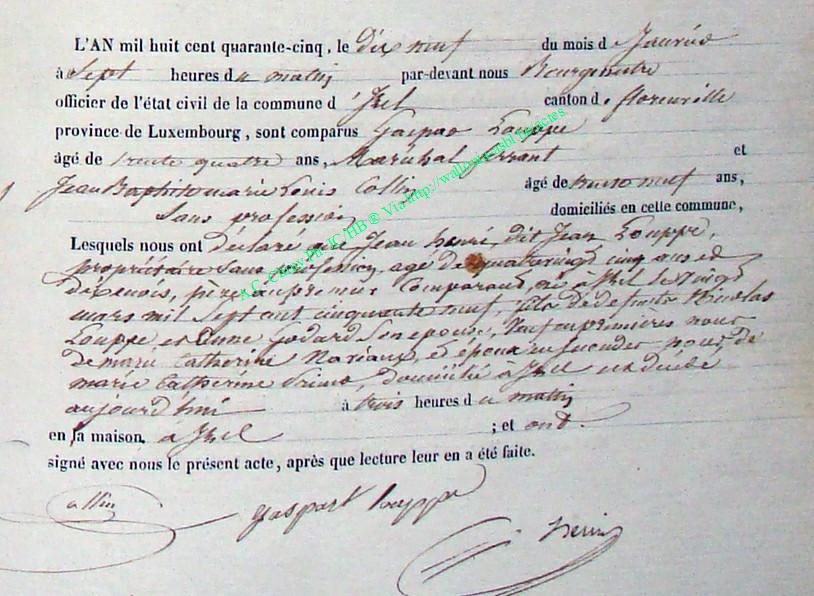 L'AN mil huit cent quarante-cinq, le Dix neuf du mois de Janvier
à Sept heures du matin par-devant nous Bourgmestre
officier de l'état civil de la commune d'Izel canton de florenville
province de Luxembourg, sont comparus Gaspar Louppe
âgé de trente quatre ans, Maréchal ferrant et
Jean Baptiste marie Louis Collin âgé de neuf ans,
Sans profession domiciliés en cette commune,
Lesquels nous ont Déclaré que Jean henri, dit Jean Louppe,
propriétaire Sans profession, agé de quatrevingt cinq ans et
dix mois, père au premier Comparant, né à Izel le vingt
mars mil Sept cent cinquante neuf, fils de defunts Nicolas
Louppe et Anne Godard Son epouse, Veuf en premières noces
de marie Catherine et époux en Secondes noces de
marie Catherine domicilié à Izel est décédé
aujourd'hui à trois heures du matin
en sa maison à Izel ; et ont
signé avec nous le présent acte, après que lecture leur en a été faite.
collin gaspart louppe
henin